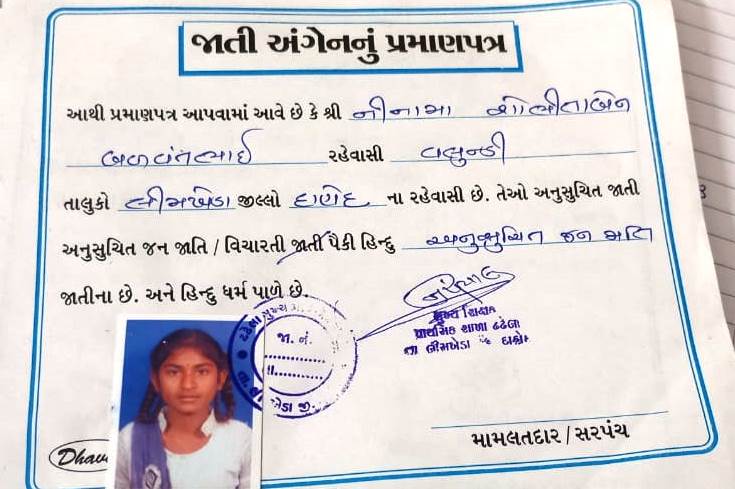 જાતી અંગેનનું પ્રમાણપત્ર
આથી પ્રમાણપત્ર આપવામાં આવે છે કે શ્રી નીનામા શોભીતાબેન
બળવંતભાઈ રહેવાસી વલુન્ડી
તાલુકો લીમખેડા જીલ્લો દાહોદ ના રહેવાસી છે. તેઓ અનુસુચિત જાતી
અનુસુચિત જન જાતિ / વિચારતી જાતી પૈકી હિન્દુ અનુસુચિત જન જાતિ
જાતીના છે. અને હિન્દુ ધર્મ પાળે છે.
મુખ્ય શિક્ષક
પ્રાથમિક શાળા ઢઢેલા
તા લીમખેડા જી દાહોદ
જા. નં.
મામલતદાર / સરપંચ